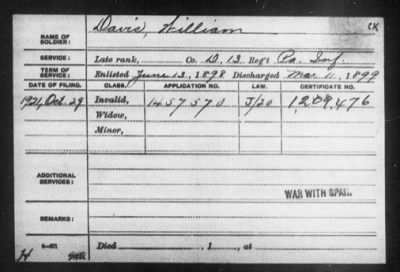 CK
NAME OF SOLDIER: Davis, William
SERVICE: Late rank, Co. D, 13 Reg't Pa. Inf.
TERM OF SERVICE: Enlisted June 12, 1898 Discharged Mar 11, 1899
DATE OF FILING. CLASS. APPLICATION NO. LAW. CERTIFICATE NO.
1921, Oct. 29 Invalid, 1457570 J/20 1,209,476
Widow,
Minor,
ADDITIONAL SERVICES:
WAR WITH SPAIN.
REMARKS:
Died , 1 , at
H